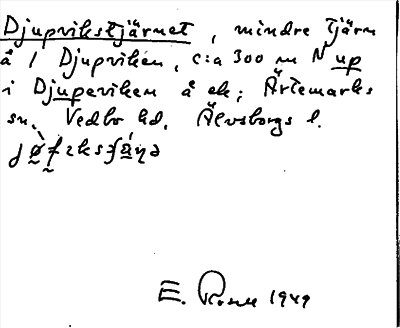 Djupvikstjärnet, mindre tjärn
å / Djupviken, c:a 300 m N up
i Djupeviken å ek; Ärtemarks
sn. Vedbo hd. Älvsborgs l.
E. 1949